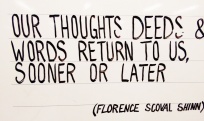 OUR THOUGHTS DEEDS &
WORDS RETURN TO US,
SOONER OR LATER
(FLORENCE SCOVAL SHINN)